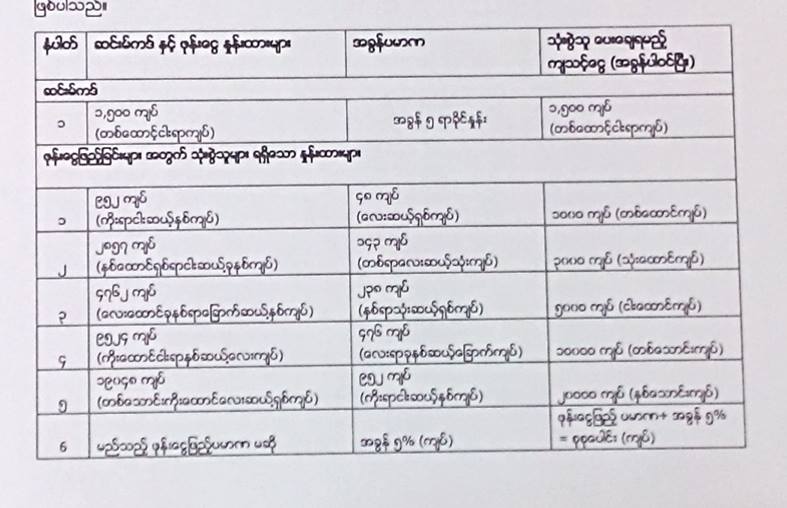 ဖြစ်ပါသည်။
နံပါတ် ဆင်းမ်ကဒ် နှင့် ဖုန်းငွေ နှုန်းထားများ အခွန်ပမာဏ သုံးစွဲသူ ပေးချေရမည့်
ကျသင့်ငွေ (အခွန်ပါဝင်ပြီး)
ဆင်းမ်ကဒ်
၁ ၁,၅၀၀ ကျပ် အခွန် ၅ ရာခိုင်နှုန်း ၁,၅၀၀ ကျပ်
(တစ်ထောင့်ငါးရာကျပ်) (တစ်ထောင့်ငါးရာကျပ်)
ဖုန်းငွေဖြည့်ခြင်းများ အတွက် သုံးစွဲသူများ ရရှိသော နှုန်းထားများ
၁ ၉၅၂ ကျပ် ၄၈ ကျပ် ၁၀၀၀ ကျပ် (တစ်ထောင်ကျပ်)
(ကိုးရာငါးဆယ့်နှစ်ကျပ်) (လေးဆယ့်ရှစ်ကျပ်)
၂ ၂၈၅၇ ကျပ် ၁၄၃ ကျပ် ၃၀၀၀ ကျပ် (သုံးထောင်ကျပ်)
(နှစ်ထောင်ရှစ်ရာငါးဆယ့်ခုနှစ်ကျပ်) (တစ်ရာလေးဆယ့်သုံးကျပ်)
၃ ၄၇၆၂ ကျပ် ၂၃၈ ကျပ် ၅၀၀၀ ကျပ် (ငါးထောင်ကျပ်)
(လေးထောင်ခုနှစ်ရာခြောက်ဆယ့်နှစ်ကျပ်) (နှစ်ရာသုံးဆယ့်ရှစ်ကျပ်)
၄ ၉၅၂၄ ကျပ် ၄၇၆ ကျပ် ၁၀၀၀၀ ကျပ် (တစ်သောင်းကျပ်)
(ကိုးထောင်ငါးရာနှစ်ဆယ့်လေးကျပ်) (လေးရာခုနှစ်ဆယ့်ခြောက်ကျပ်)
၅ ၁၉၀၄၈ ကျပ် ၉၅၂ ကျပ် ၂၀၀၀၀ ကျပ် (နှစ်သောင်းကျပ်)
(တစ်သောင်းကိုးထောင်လေးဆယ့်ရှစ်ကျပ်) (ကိုးရာငါးဆယ့်နှစ်ကျပ်)
6 မည်သည့် ဖုန်းငွေဖြည့်ပမာဏ မဆို အခွန် ၅% (ကျပ်) ဖုန်းငွေဖြည့် ပမာဏ+ အခွန် ၅%
= စုစုပေါင်း (ကျပ်)